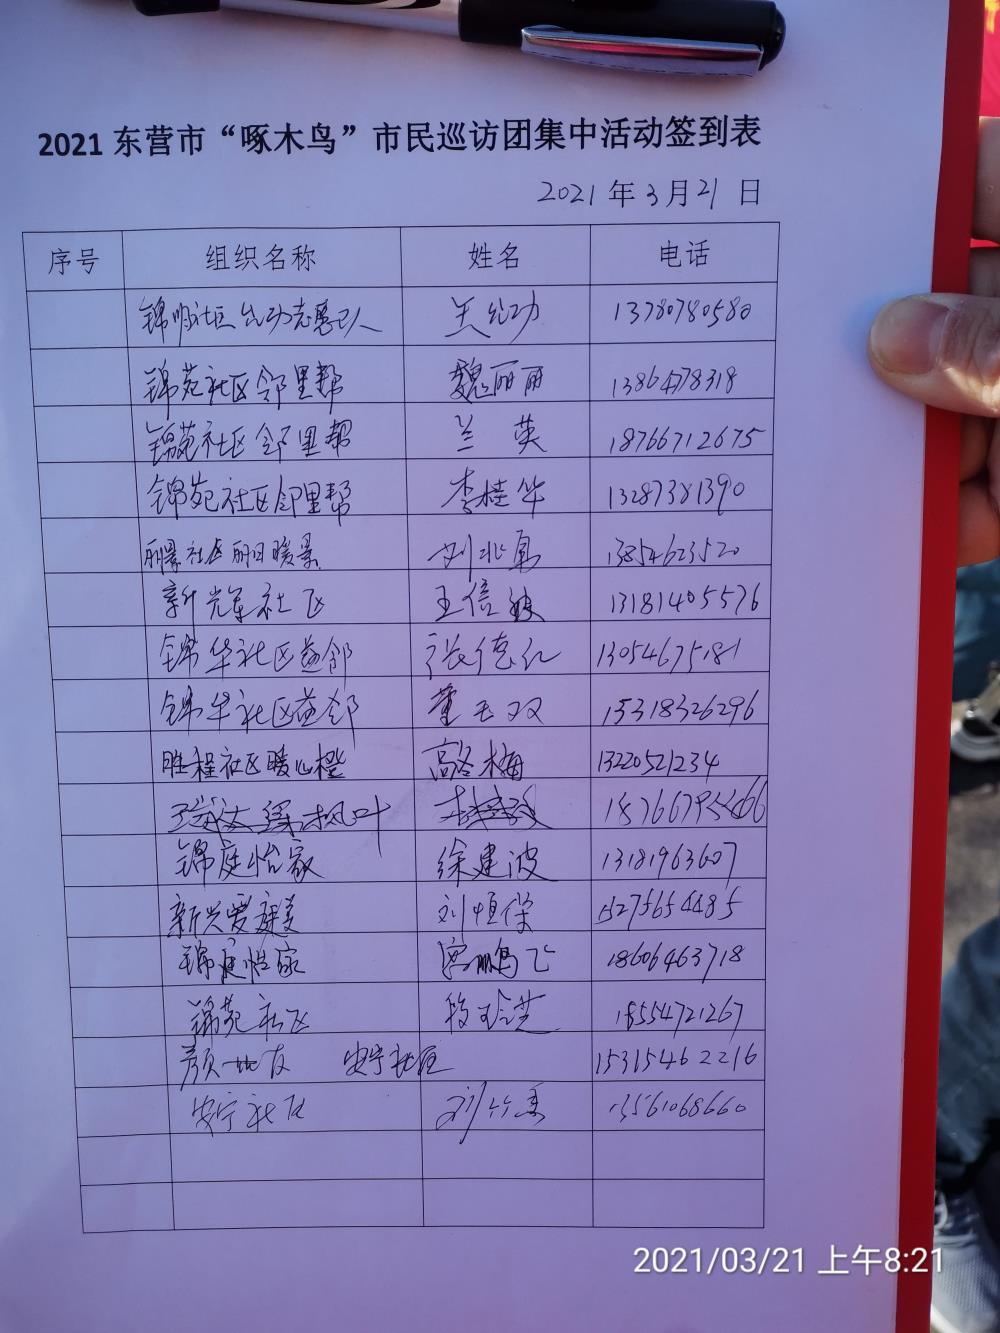 2021东营市“啄木鸟”市民巡访团集中活动签到表
2021年3月21日
序号 组织名称 姓名 电话
社区 志愿队 13780780580
锦苑社区邻里帮 魏丽丽 1386478318
锦苑社区邻里帮 兰英 18766712675
锦苑社区邻里帮 李桂华 13287381390
丽景社区丽日暖景 刘 13854623520
社区 王信 13181405576
锦华社区益邻 张德仁 13054675181
锦华社区益邻 董玉双 15318326296
胜程社区暖心橙 高冬梅 13220521234
枫叶
锦庭怡家 徐建波 13181963607
新兴爱庭美 刘恒保 15275654485
锦庭怡家 鹏飞 18606463718
锦苑社区 段玲芝 18554721267
颜 友 安宁社区 15315462216
安宁社区 刘竹 13561068660
2021/03/21 上午8:21